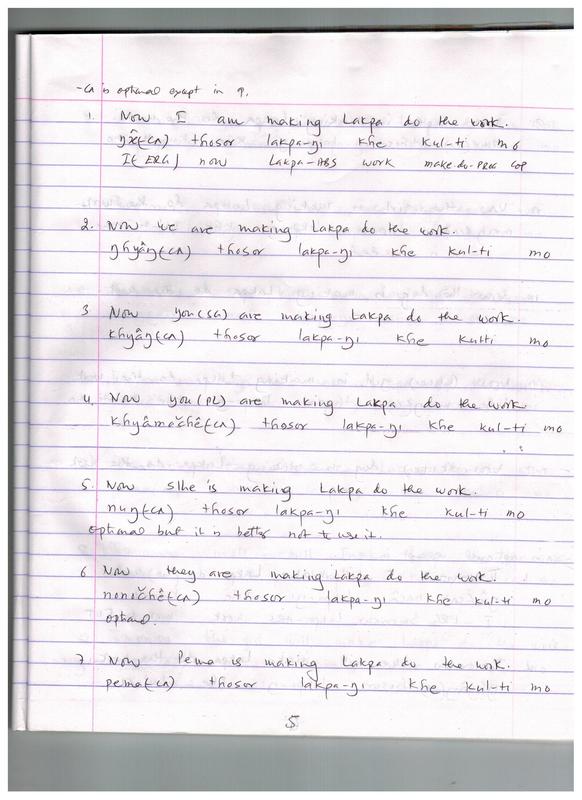 -cʌ is optional except in 9.
1. Now I am making Lakpa do the work.
thosor lakpa-ŋi khe kul-ti mo
I(ERG) now Lakpa-ABS work make.do-PROG COP
2. Now we are making Lakpa do the work.
ŋhyâŋ(-cʌ) thosor lakpa-ŋi khe kul-ti mo
3 Now you(SG) are making Lakpa do the work.
khyâŋ(-cʌ) thosor lakpa-ŋi khe kul-ti mo
4. Now you(PL) are making Lakpa do the work
khyâmǒchê(-cʌ) thosor lakpa-ŋi khe kul-ti mo
5. Now s/he is making Lakpa do the work.
nuŋ(-cʌ) thosor lakpa-ŋi khe kul-ti mo
optional but it is better not to use it.
6 Now they are making Lakpa do the work.
thosor lakpa-ŋi khe kul-ti mo
optional.
7. Now Pema is making Lakpa do the work.
pema(-cʌ) thosor lakpa-ŋi khe kul-ti mo
5